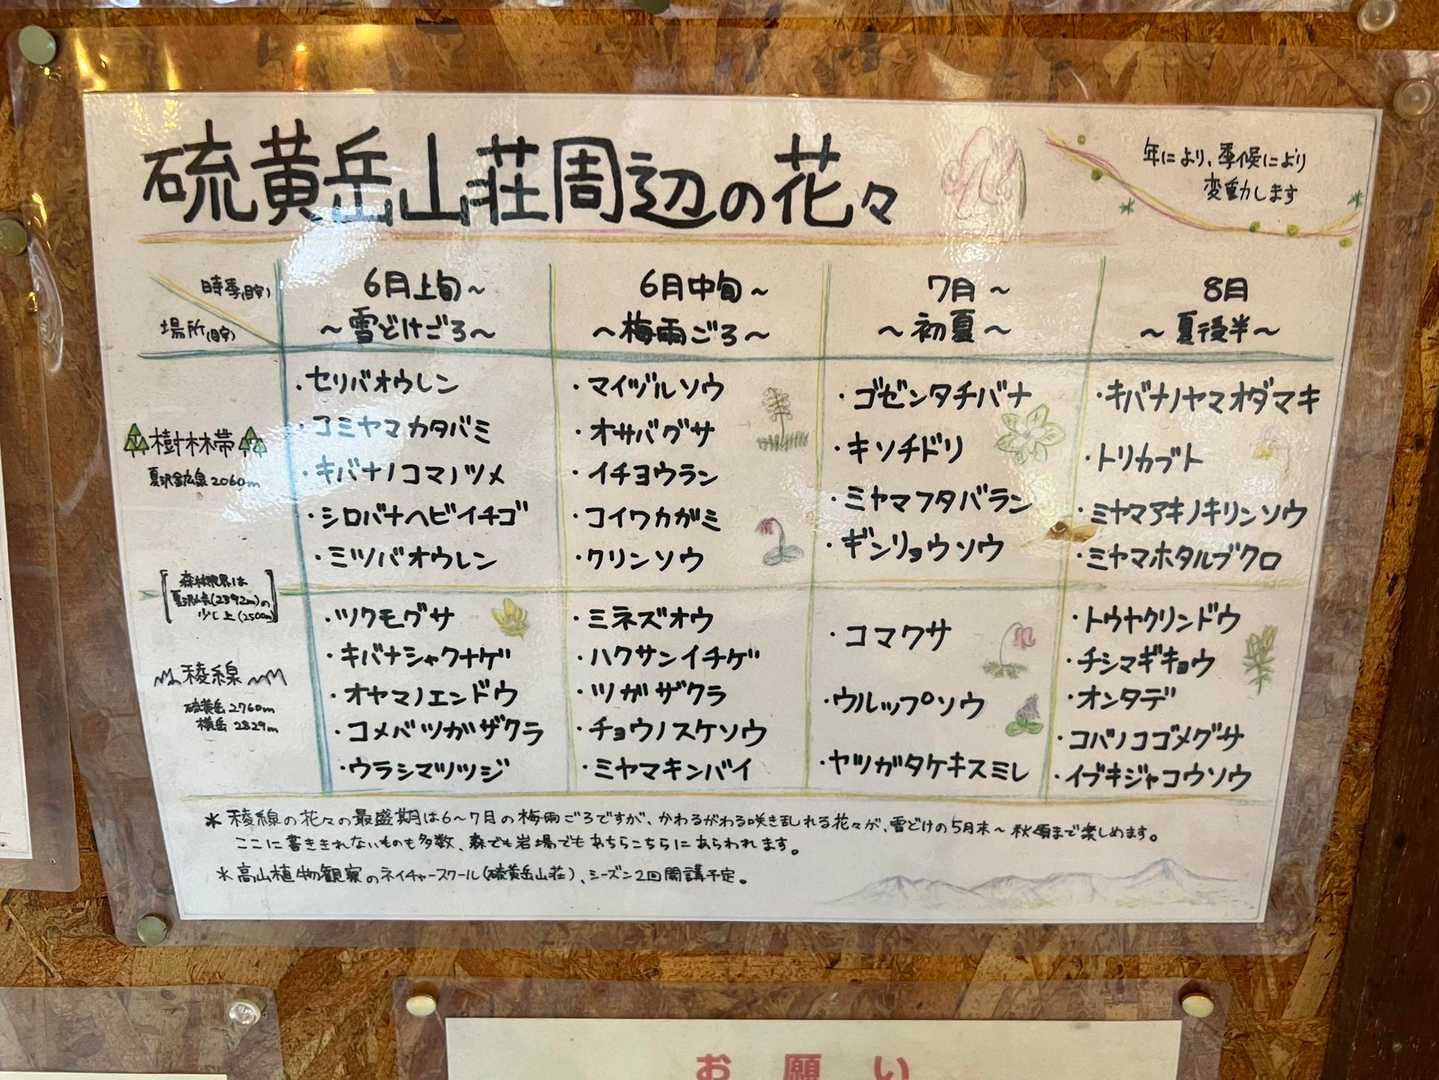 硫黄岳山荘周辺の花々
年により、季候により
変動します
時季(目安)
場所(目安)
6月上旬~
~雪どけごろ~
6月中旬~
~梅雨ごろ~
7月~
~初夏~
8月
~夏後半~
樹林帯
夏沢鉱泉2060m
・セリバオウレン
・コミヤマカタバミ
・キバナノコマノツメ
・シロバナヘビイチゴ
・ミツバオウレン
・マイヅルソウ
・オサバグサ
・イチヨウラン
・コイワカガミ
・クリンソウ
・ゴゼンタチバナ
・キソチドリ
・ミヤマフタバラン
・ギンリョウソウ
・キバナノヤマオダマキ
・トリカブト
・ミヤマアキノキリンソウ
・ミヤマホタルブクロ
[森林限界は
の
少し上(2500m)]
稜線
硫黄岳2760m
横岳2829m
・ツクモグサ
・キバナシャクナゲ
・オヤマノエンドウ
・コメバツガザクラ
・ウラシマツツジ
・ミネズオウ
・ハクサンイチゲ
・ツガザクラ
・チョウノスケソウ
・ミヤマキンバイ
・コマクサ
・ウルップソウ
・ヤツガタケキスミレ
・トウヤクリンドウ
・チシマギキョウ
・オンタデ
・コバノコゴメグサ
・イブキジャコウソウ
*稜線の花々の最盛期は6~7月の梅雨ごろですが、かわるがわる咲き乱れる花々が、雪どけの5月末~秋頃まで楽しめます。
ここに書ききれないものも多数、森でも岩場でもあちらこちらにあらわれます。
*高山植物観察のネイチャースクール(硫黄岳山荘)、シーズン2回開講予定。
お願い